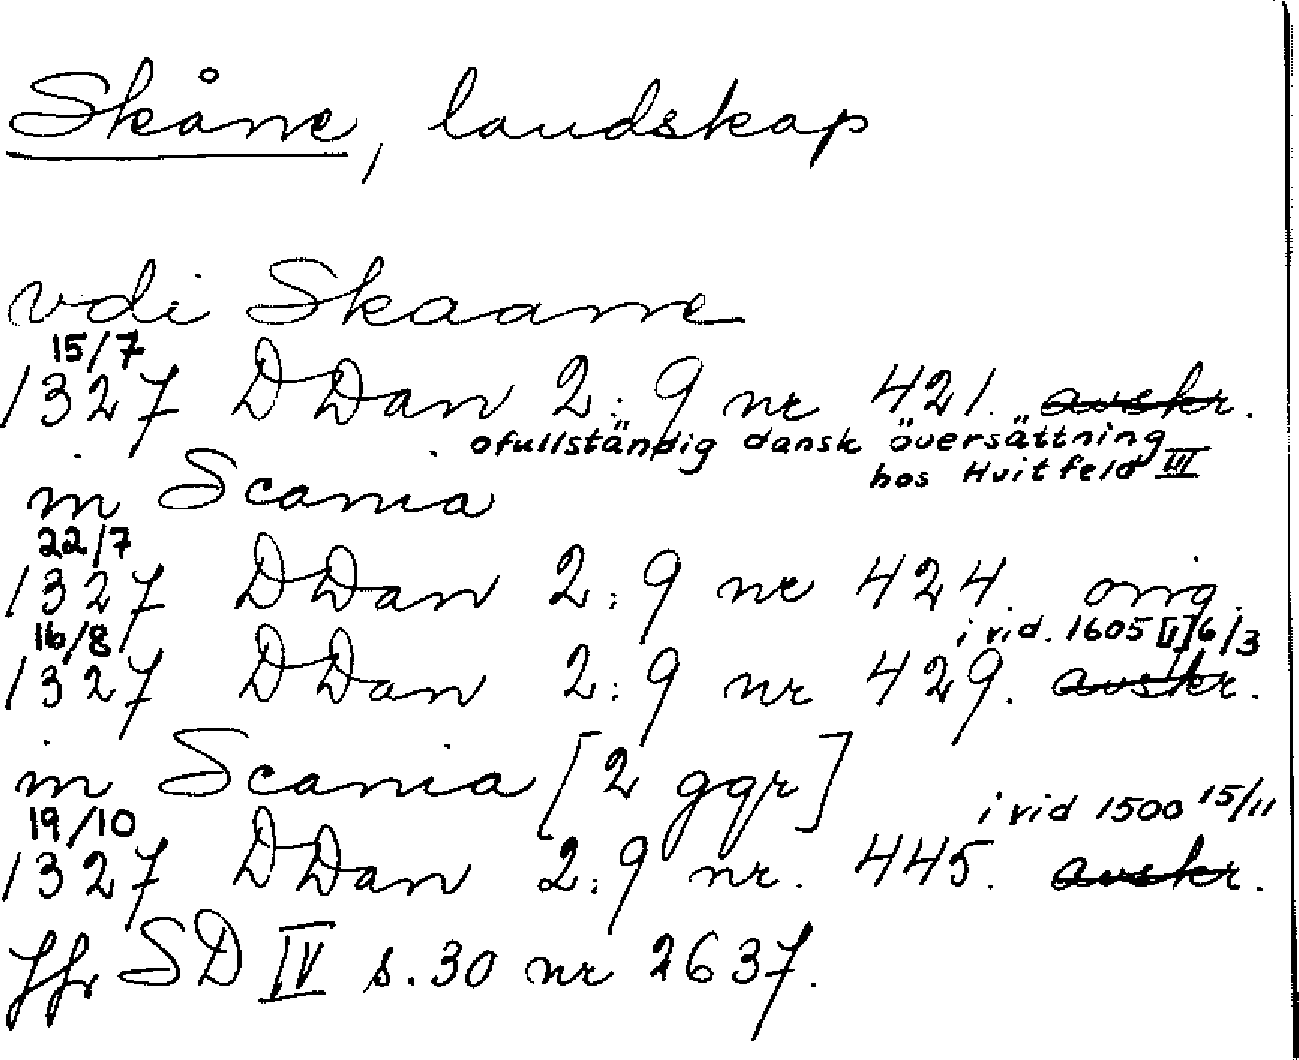 Skåne, landskap
vdi Skaane
15/7
1327 DDan 2:9 nr 421. avskr.
ofullständig dansk översättning
hos Huitfeld III
in Scania
22/7
1327 DDan 2:9 nr 424. orig.
16/8
i vid. 1605 [1]6/3
1327 DDan 2:9 nr 429. avskr.
in Scania [2 ggr]
19/10
i vid 1500 15/11
1327 DDan 2:9 nr. 445. avskr.
Jfr SD IV s. 30 nr 2637.